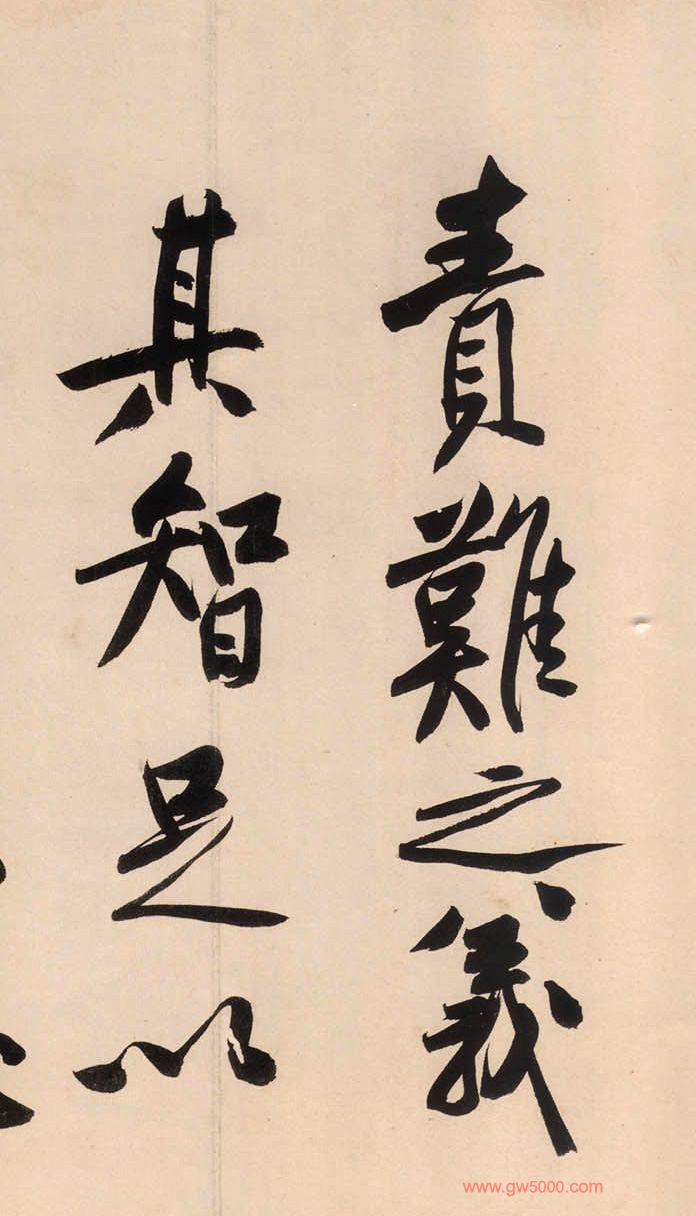 責難之義
其智足以
www.gw5000.com